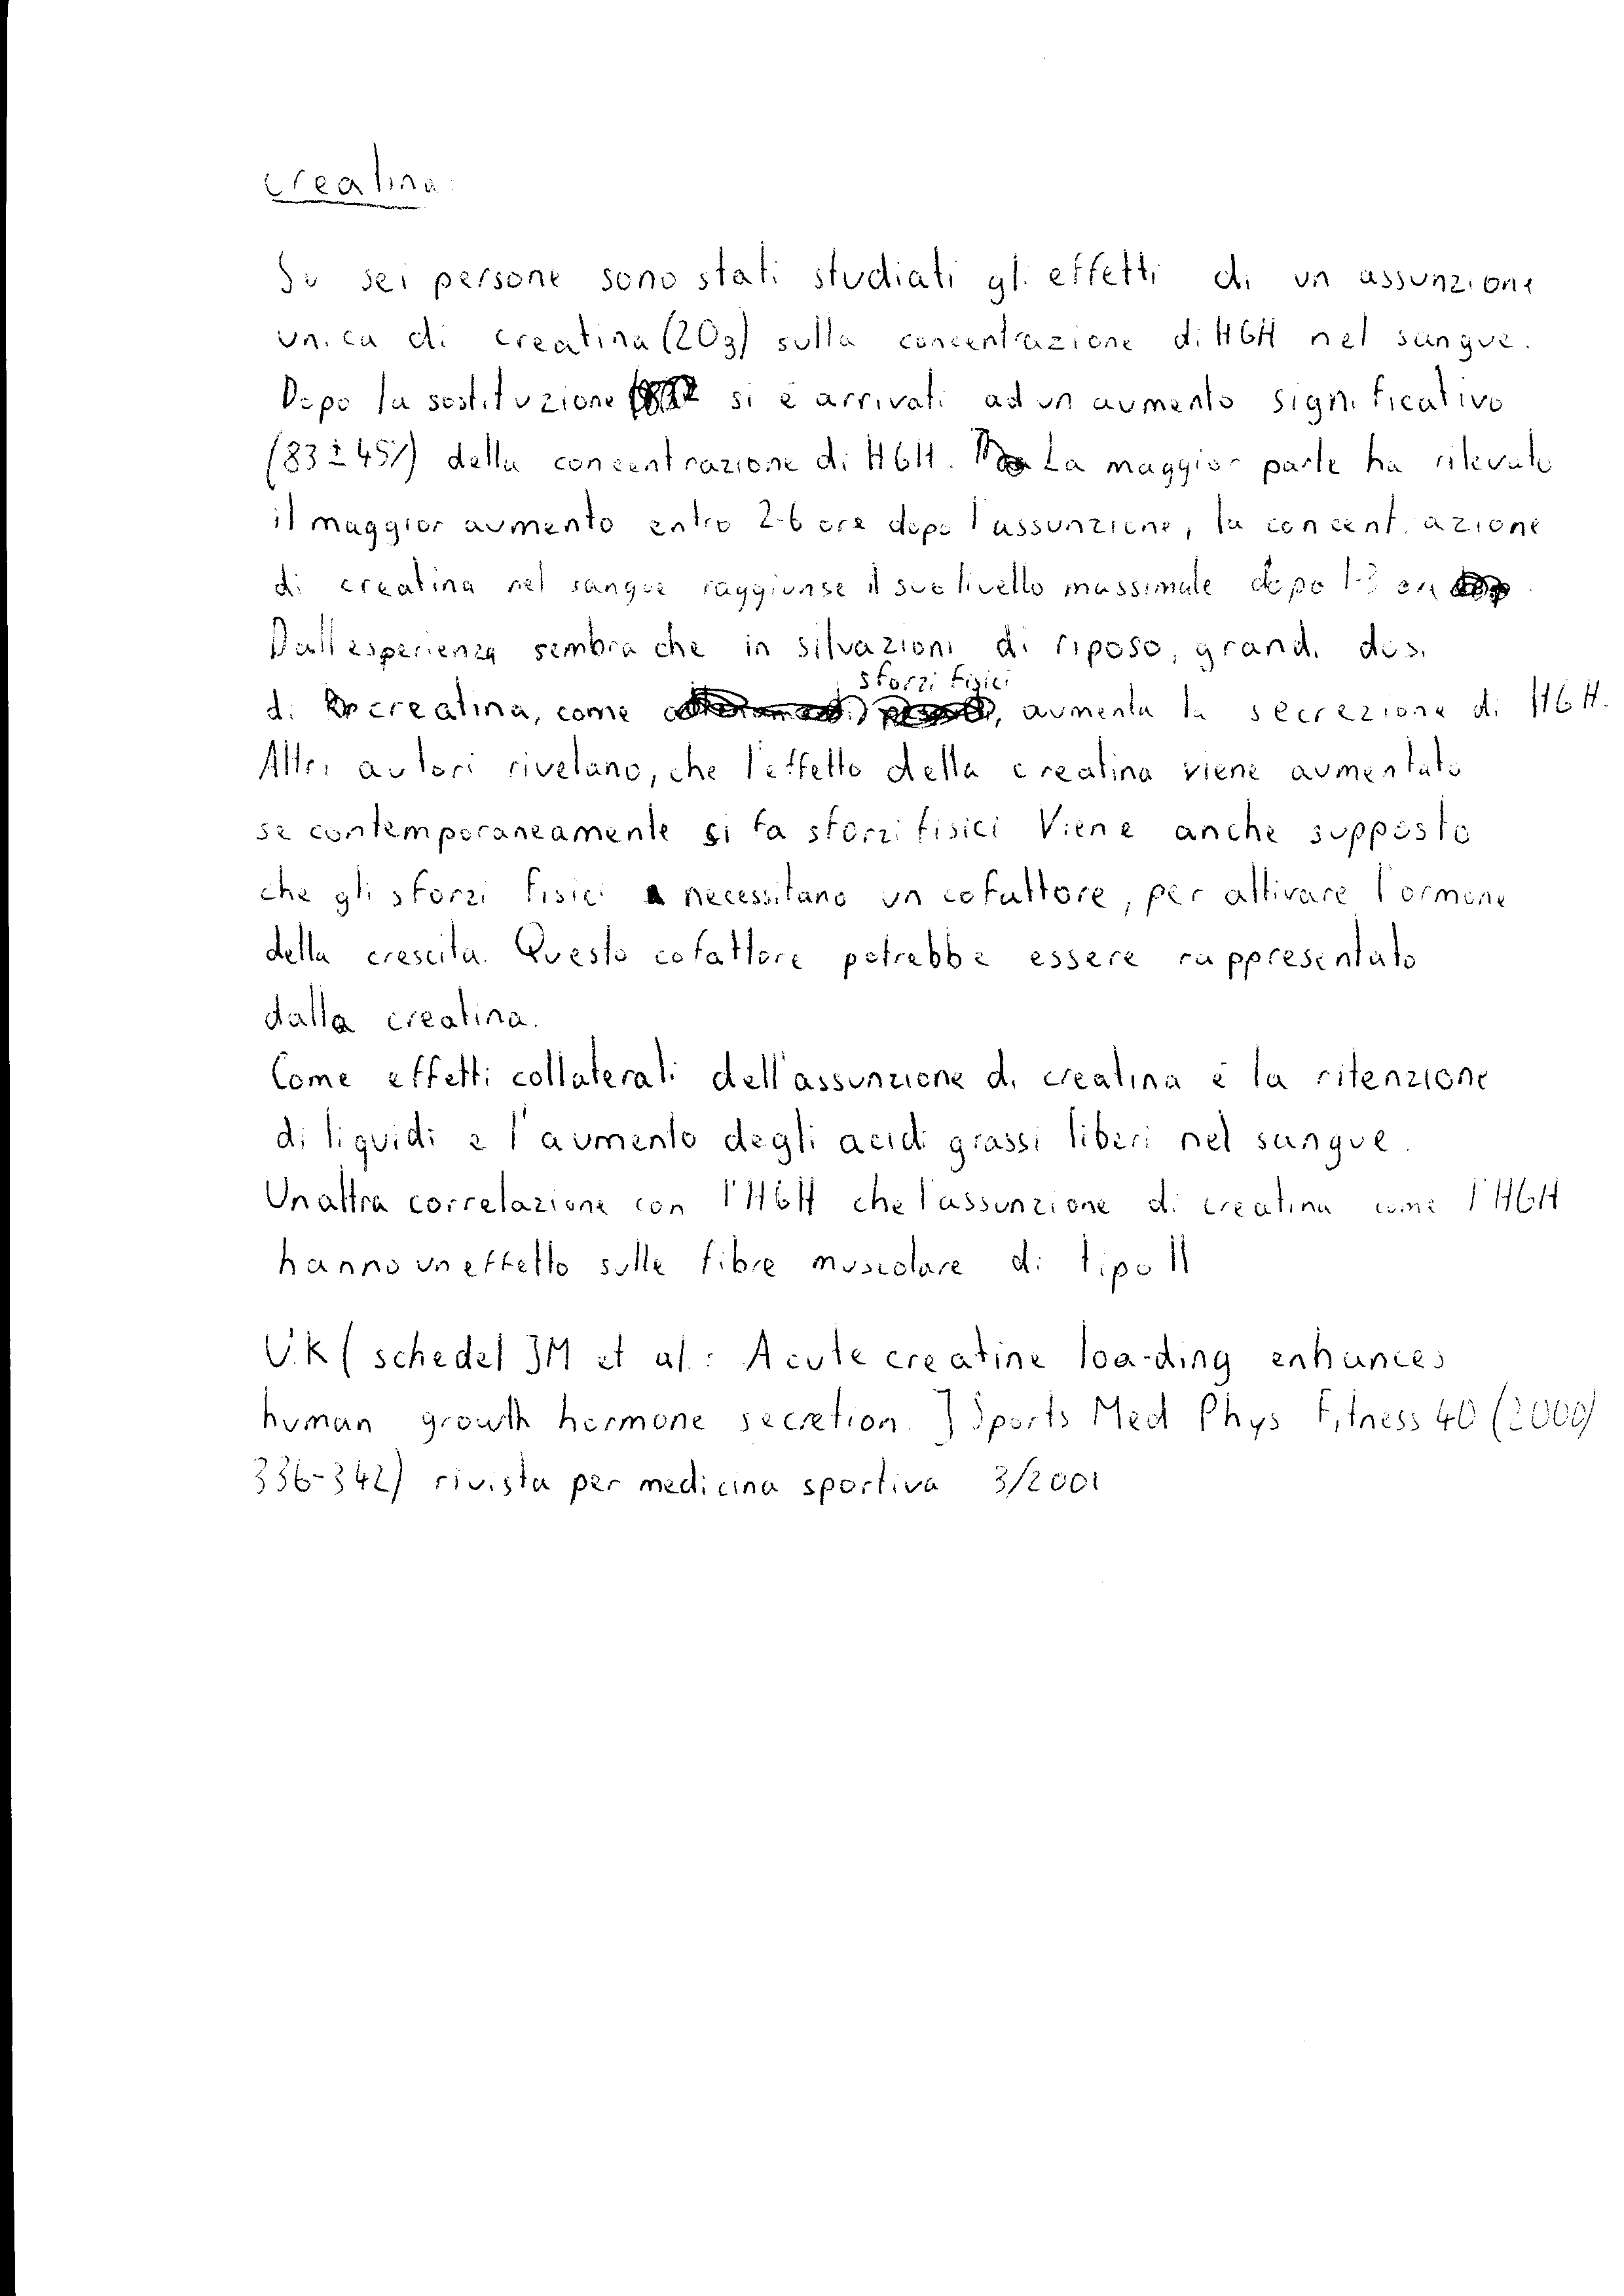 creatina:
Su sei persone sono stati studiati gli effetti di un assunzione
unica di creatina (20g) sulla concentrazione di HGH nel sangue.
Dopo la sostituzione si è arrivati ad un aumento significativo
(83±45%) della concentrazione di HGH. La maggior parte ha rilevato
il maggior aumento entro 2-6 ore dopo l'assunzione, la concentrazione
di creatina nel sangue raggiunse il suo livello massimale dopo 1-3 ore
Dall'esperienza sembra che in situazioni di riposo, grandi dosi
sforzi fisici
di creatina, come , aumenta la secrezione di HGH.
Altri autori rivelano, che l'effetto della creatina viene aumentato
se contemporaneamente si fa sforzi fisici Viene anche supposto
che gli sforzi fisici necessitano un cofattore, per attivare l'ormone
della crescita. Questo cofattore potrebbe essere rappresentato
dalla creatina.
Come effetti collaterali dell'assunzione di creatina è la ritenzione
di liquidi e l'aumento degli acidi grassi liberi nel sangue.
Unaltra correlazione con l'HGH che l'assunzione di creatina come l'HGH
hanno un effetto sulle fibre muscolare di tipo II
U.K (schedel JM et al.: Acute creatine loa-ding enhances
human growth hormone secretion. J Sports Med Phys Fitness 40 (2000)
336-342) rivista per medicina sportiva 3/2001